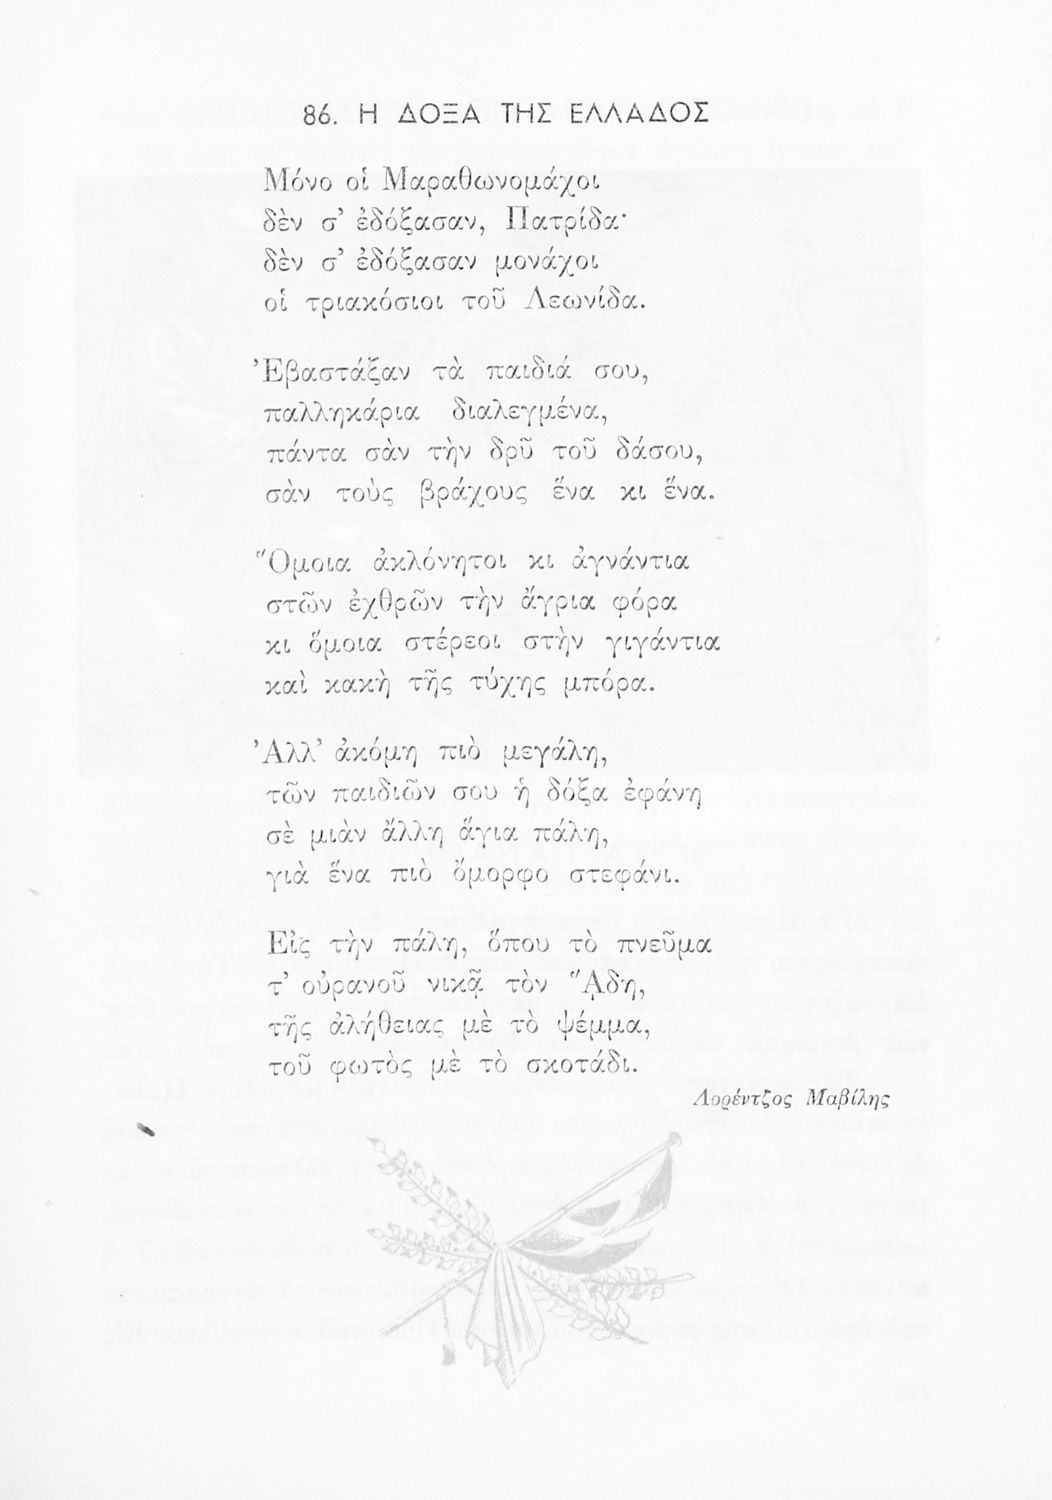 86. Η ΔΟΞΑ ΤΗΣ ΕΛΛΑΔΟΣ
Μόνο οἱ Μαραθωνομάχοι
δὲν σ’ ἐδόξασαν, Πατρίδα·
δὲν σ’ ἐδόξασαν μονάχοι
οἱ τριακόσιοι τοῦ Λεωνίδα.
Ἐβαστάξαν τὰ παιδιά σου,
παλληκάρια διαλεγμένα,
πάντα σὰν τὴν δρῦ τοῦ δάσου,
σὰν τοὺς βράχους ἕνα κι ἕνα.
Ὅμοια ἀκλόνητοι κι ἀγνάντια
στῶν ἐχθρῶν τὴν ἄγρια φόρα
κι ὅμοια στέρεοι στὴν γιγάντια
καὶ κακὴ τῆς τύχης μπόρα.
Ἀλλ’ ἀκόμη πιὸ μεγάλη,
τῶν παιδιῶν σου ἡ δόξα ἐφάνη
σὲ μιὰν ἄλλη ἅγια πάλη,
γιὰ ἕνα πιὸ ὄμορφο στεφάνι.
Εἰς τὴν πάλη, ὅπου τὸ πνεῦμα
τ’ οὐρανοῦ νικᾷ τὸν Ἅδη,
τῆς ἀλήθειας μὲ τὸ ψέμμα,
τοῦ φωτὸς μὲ τὸ σκοτάδι.
Λορέντζος Μαβίλης